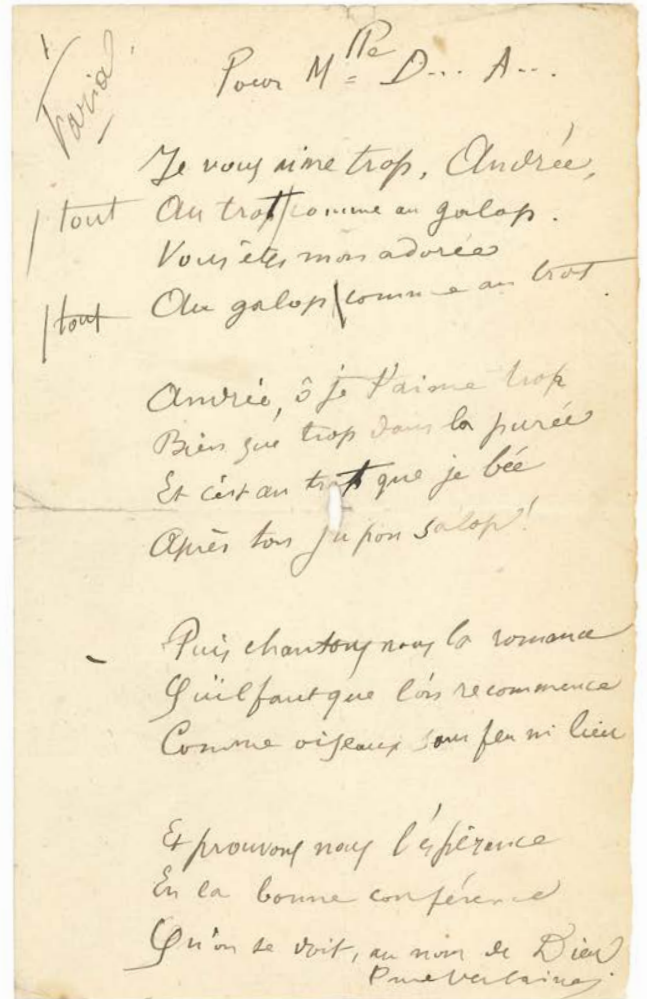 Varia
Pour Mlle D... A...
Je vous aime trop, Andrée,
/ tout Au trot / comme au galop.
Vous êtes mon adorée
/ tout Au galop \ comme au trot.
Andrée, ô je t'aime trop
Bien que trop dans la purée
Et c'est au trot que je bée
Après ton jupon salop !
Puis chantons nous la romance
Qu'il faut que l'on recommence
Comme oiseaux sans feu ni lieu
Et prouvons nous l'espérance
En la bonne conférence
Qu'on se doit, au nom de Dieu
P Verlaine